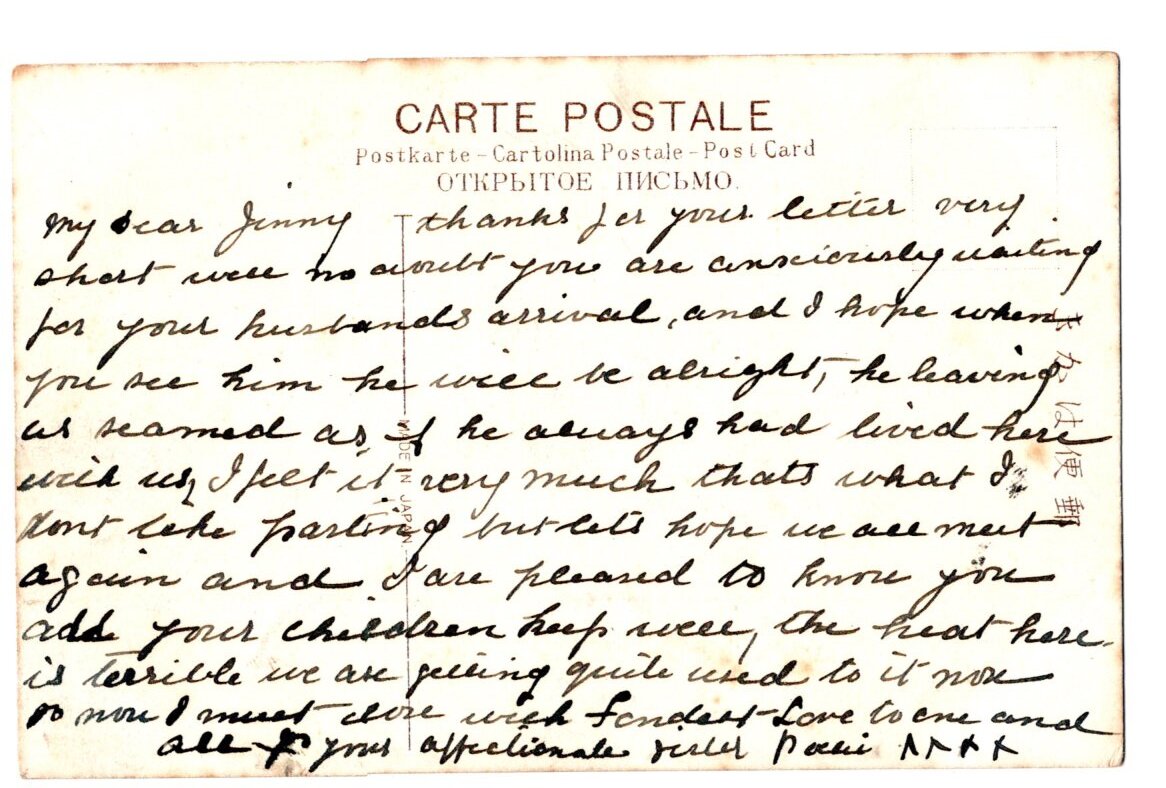 CARTE POSTALE
Postkarte - Cartolina Postale - Post Card
ОТКРЫТОЕ ПИСЬМО.
My Dear Jinny thanks for your letter very
short well no doubt you are consciously waiting
for your husbands arrival, and I hope when
you see him he will be alright, he leaving
us seamed as if he always had lived here
with us, I felt it very much thats what I
dont like parting but lets hope we all meet
again and I are pleased to know you
add your children keep well, the heat here
is terrible we are getting quite used to it now
so now I must close with fondest Love to one and
all from your affectionate sister XXXX
MADE IN JAPAN
きがは便郵